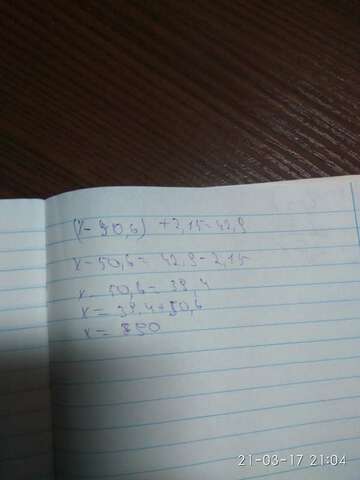 (x - 50,6) + 2,15 = 42,9
x - 50,6 = 42,9 - 2,15
x - 50,6 = 39,4
x = 39,4 + 50,6
x = 850
21-03-17 21:04